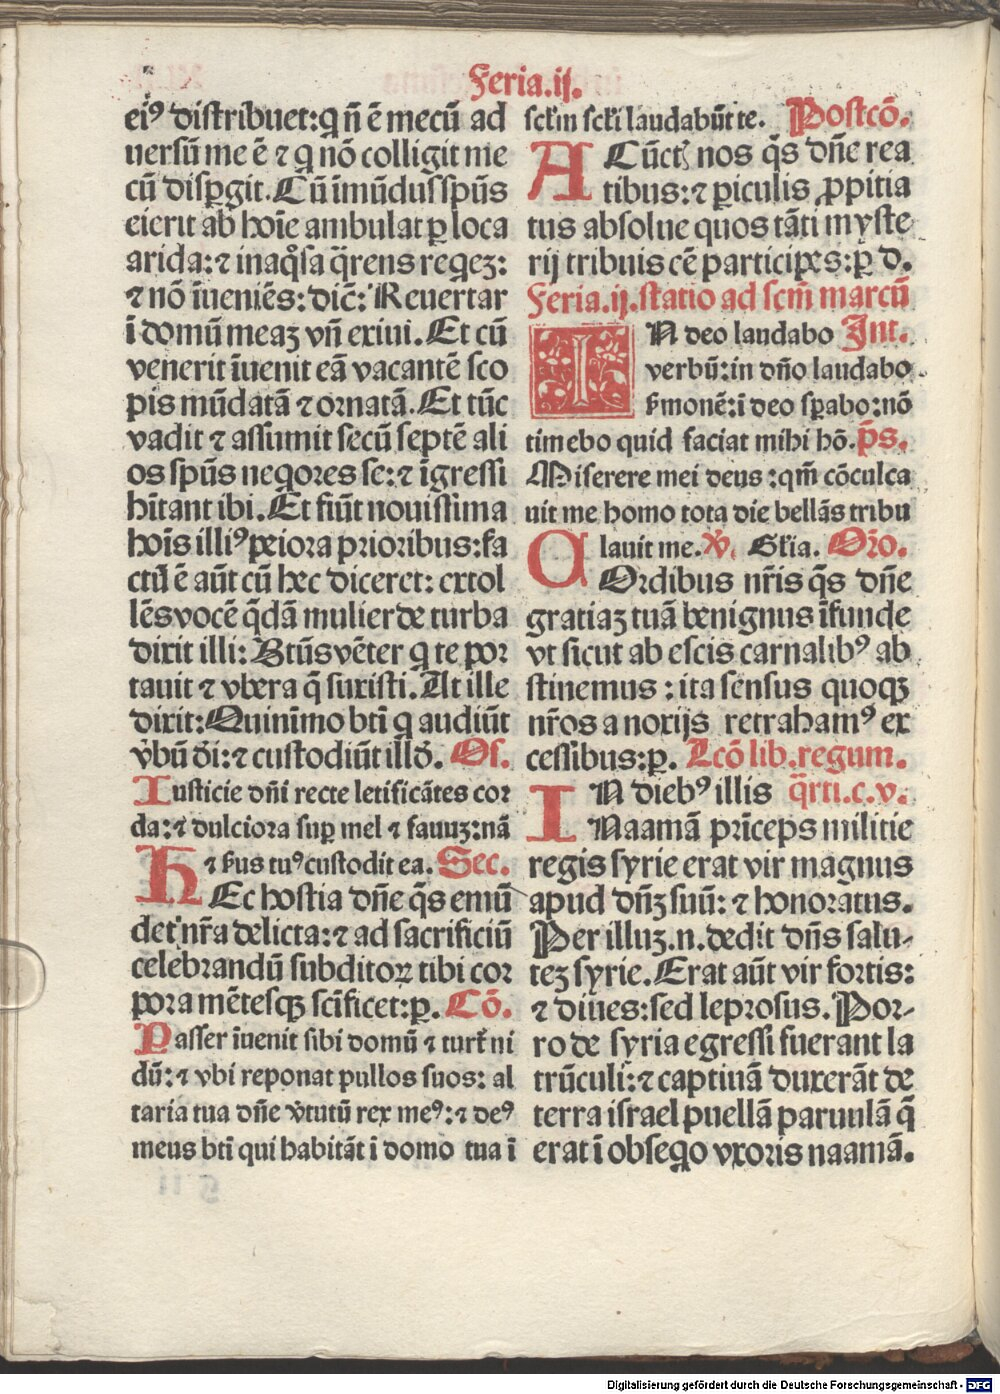 Feria.ij.
eiꝰ distribuet:q̄ nō ē mecū ad
uersū me ē ⁊ q̄ nō colligit me
cū disꝑgit. Cū īmūdus spūs
exierit ab hoīe ambulat ꝑ loca
arida:⁊ inaq̊sa q̄rens requieꝫ:
⁊ nō īueniēs: dic̄: Reuertar
ī domū meaꝫ vn̄ exiui. Et cū
venerit īuenit eā vacantē sco
pis mūdatā ⁊ ornatā. Et tūc
vadit ⁊ assumit secū septē ali
os spūs neq̄ores se:⁊ īgressi
hītant ibi. Et fiūt nouissima
hoīs illiꝰ peiora prioribus:fa
ctū ē aūt cū hec diceret: extol
lēs vocē q̄dā mulier de turba
dixit illi: Btūs vēter q̄ te por
tauit ⁊ vbera q̄ suxisti. At ille
dixit: Quinīmo btī q̄ audiūt
v̄bū dī:⁊ custodiūt illō. Of.
Iusticie dn̄i recte letificātes cor
da:⁊ dulciora suꝑ mel ⁊ fauuꝫ:nā
⁊ ẜuus tuꝰ custodit ea. Sec.
HEc hostia dn̄e q̄s emū
det nr̄a delicta:⁊ ad sacrificiū
celebrandū subditoꝝ tibi cor
pora mētesqꝫ scīficet:ꝑ. Cō.
Passer īuenit sibi domū ⁊ turt̄ ni
dū:⁊ vbi reponat pullos suos: al
taria tua dn̄e v̄tutū rex meꝰ:⁊ deꝰ
meus btī qui habitāt ī domo tua ī
sclm̄ scl̄i laudabūt te. Postcō.
ACūctꝭ nos q̄s dn̄e rea
tibus:⁊ ꝑiculis ꝓpitia
tus absolue quos tāti myste
rij tribuis cē participes:ꝑ d.
Feria.ij.statio ad scm̄ marcū
IN deo laudabo Int.
verbū:in dn̄o laudabo
ẜmonē:ī deo sꝑabo:nō
timebo quid faciat mihi hō. ps̄.
Miserere mei deus:qm̄ cōculca
uit me homo tota die bellās tribu
lauit me. v̄. Gl̄ia. Orō.
COrdibus nr̄is q̄s dn̄e
gratiaꝫ tuā benignus īfunde
vt sicut ab escis carnalibꝰ ab
stinemus : ita sensus quoqꝫ
nr̄os a noxijs retrahamꝰ ex
cessibus:ꝑ. Lcō lib.regum.
IN diebꝰ illis q̄rti.c.v.
Naamā prīceps militie
regis syrie erat vir magnus
apud dn̄ꝫ suū: ⁊ honoratus.
Per illuꝫ.n.dedit dn̄s salu-
teꝫ syrie. Erat aūt vir fortis:
⁊ diues:sed leprosus. Por-
ro de syria egressi fuerant la
trūculi:⁊ captiuā duxerāt de
terra israel puellā paruulā q̄
erat ī obseq̄o vxoris naamā.
Digitalisierung gefördert durch die Deutsche Forschungsgemeinschaft - DFG